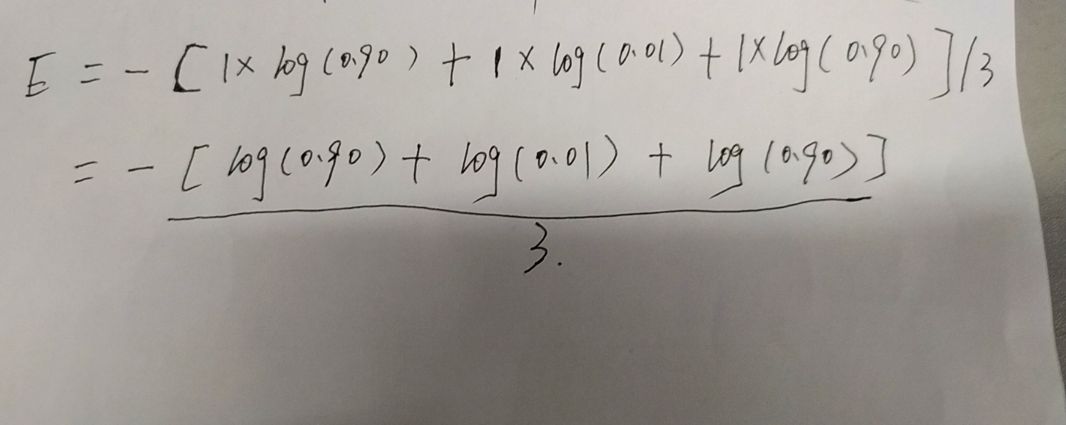 E = - [ 1× log (0.90) + 1 × log (0.01) + 1× log ( 0.90) ] /3
= - [ log (0.90) + log (0.01) + log (0.90) ]
3.